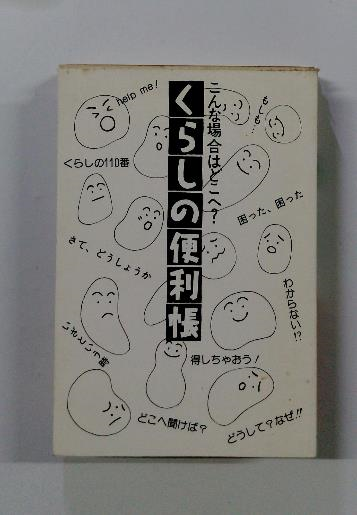 こんな場合はどこへ?
くらしの便利帳
help me!
もしも
くらしの110番
困った、困った
さて、どうしょうか
わからない!?
得しちゃおう!
どこへ聞けば?
どうして?なぜ!!